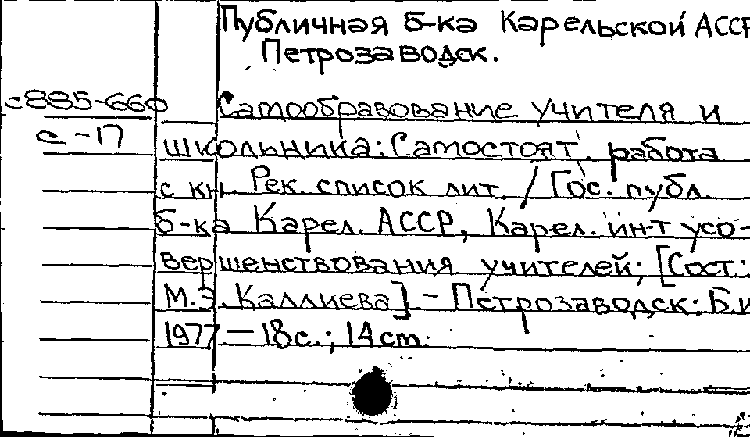 Публичная б-ка Карельской АССР
Петрозаводск.
с885-660 Самообразование учителя и
с-17 школьника: Самостоят. работа
с кн. Рек. список лит. / Гос. публ.
б-ка Карел. АССР, Карел. ин-т усо-
вершенствования учителей; [Сост:
М.Э. Каллиева] - Петрозаводск: Б.и
1977 — 18с.; 14 см.